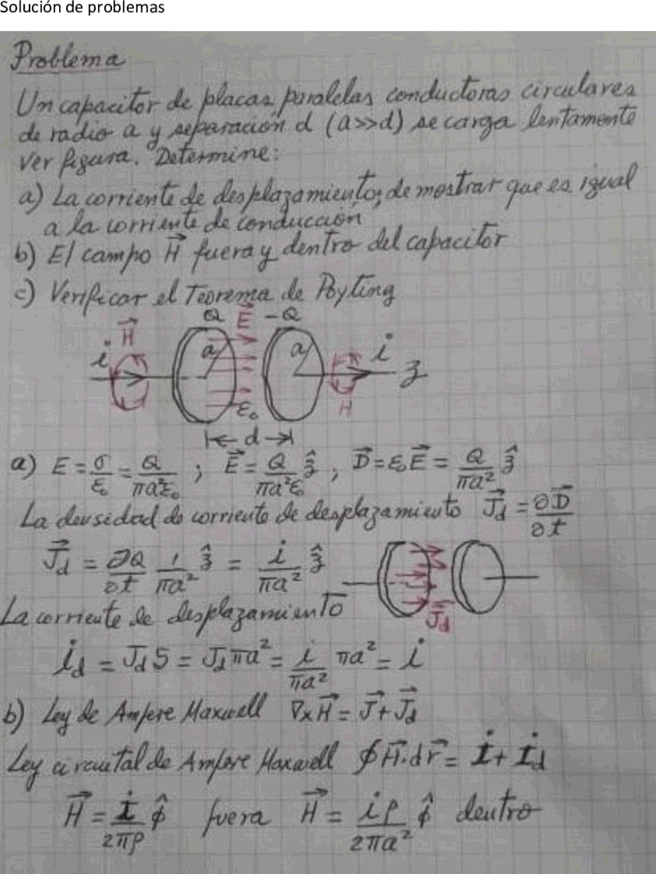 Solución de problemas
Problema
Un capacitor de placas paralelas conductoras circulares
de radio a y separación d (a>>d) se carga lentamente
ver figura. Determine:
a) La corriente de desplazamiento; demostrar que es igual
a la corriente de conducción
b) El campo H⃗ fuera y dentro del capacitor
c) Verificar el Teorema de Poyting
Q E⃗ -Q
i H⃗ a a i z
ε₀ H
|← d →|
a) E = σ/ε₀ = Q/πa²ε₀ ; E⃗ = Q/πa²ε₀ ẑ ; D⃗ = ε₀E⃗ = Q/πa² ẑ
La densidad de corriente de desplazamiento J⃗d = ∂D⃗/∂t
J⃗d = ∂Q/∂t 1/πa² ẑ = i/πa² ẑ
J⃗d
La corriente de desplazamiento
id = Jd S = Jd πa² = i/πa² πa² = i
b) Ley de Ampere Maxwell ∇×H⃗ = J⃗ + J⃗d
Ley circuital de Ampere Maxwell ∮H⃗·dr⃗ = i + id
H⃗ = i/2πρ φ̂ fuera H⃗ = iρ/2πa² φ̂ dentro